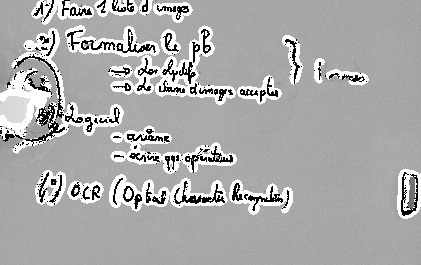 1) Faire 1 liste d'images
2) Formaliser le pb
→ Les objectifs
→ Le type d'images acceptés
Logiciel
- écrire qqs opérateurs
OCR (Optical Character Recognition)